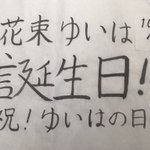 花束ゆいは
誕生日!
祝!ゆいはの日